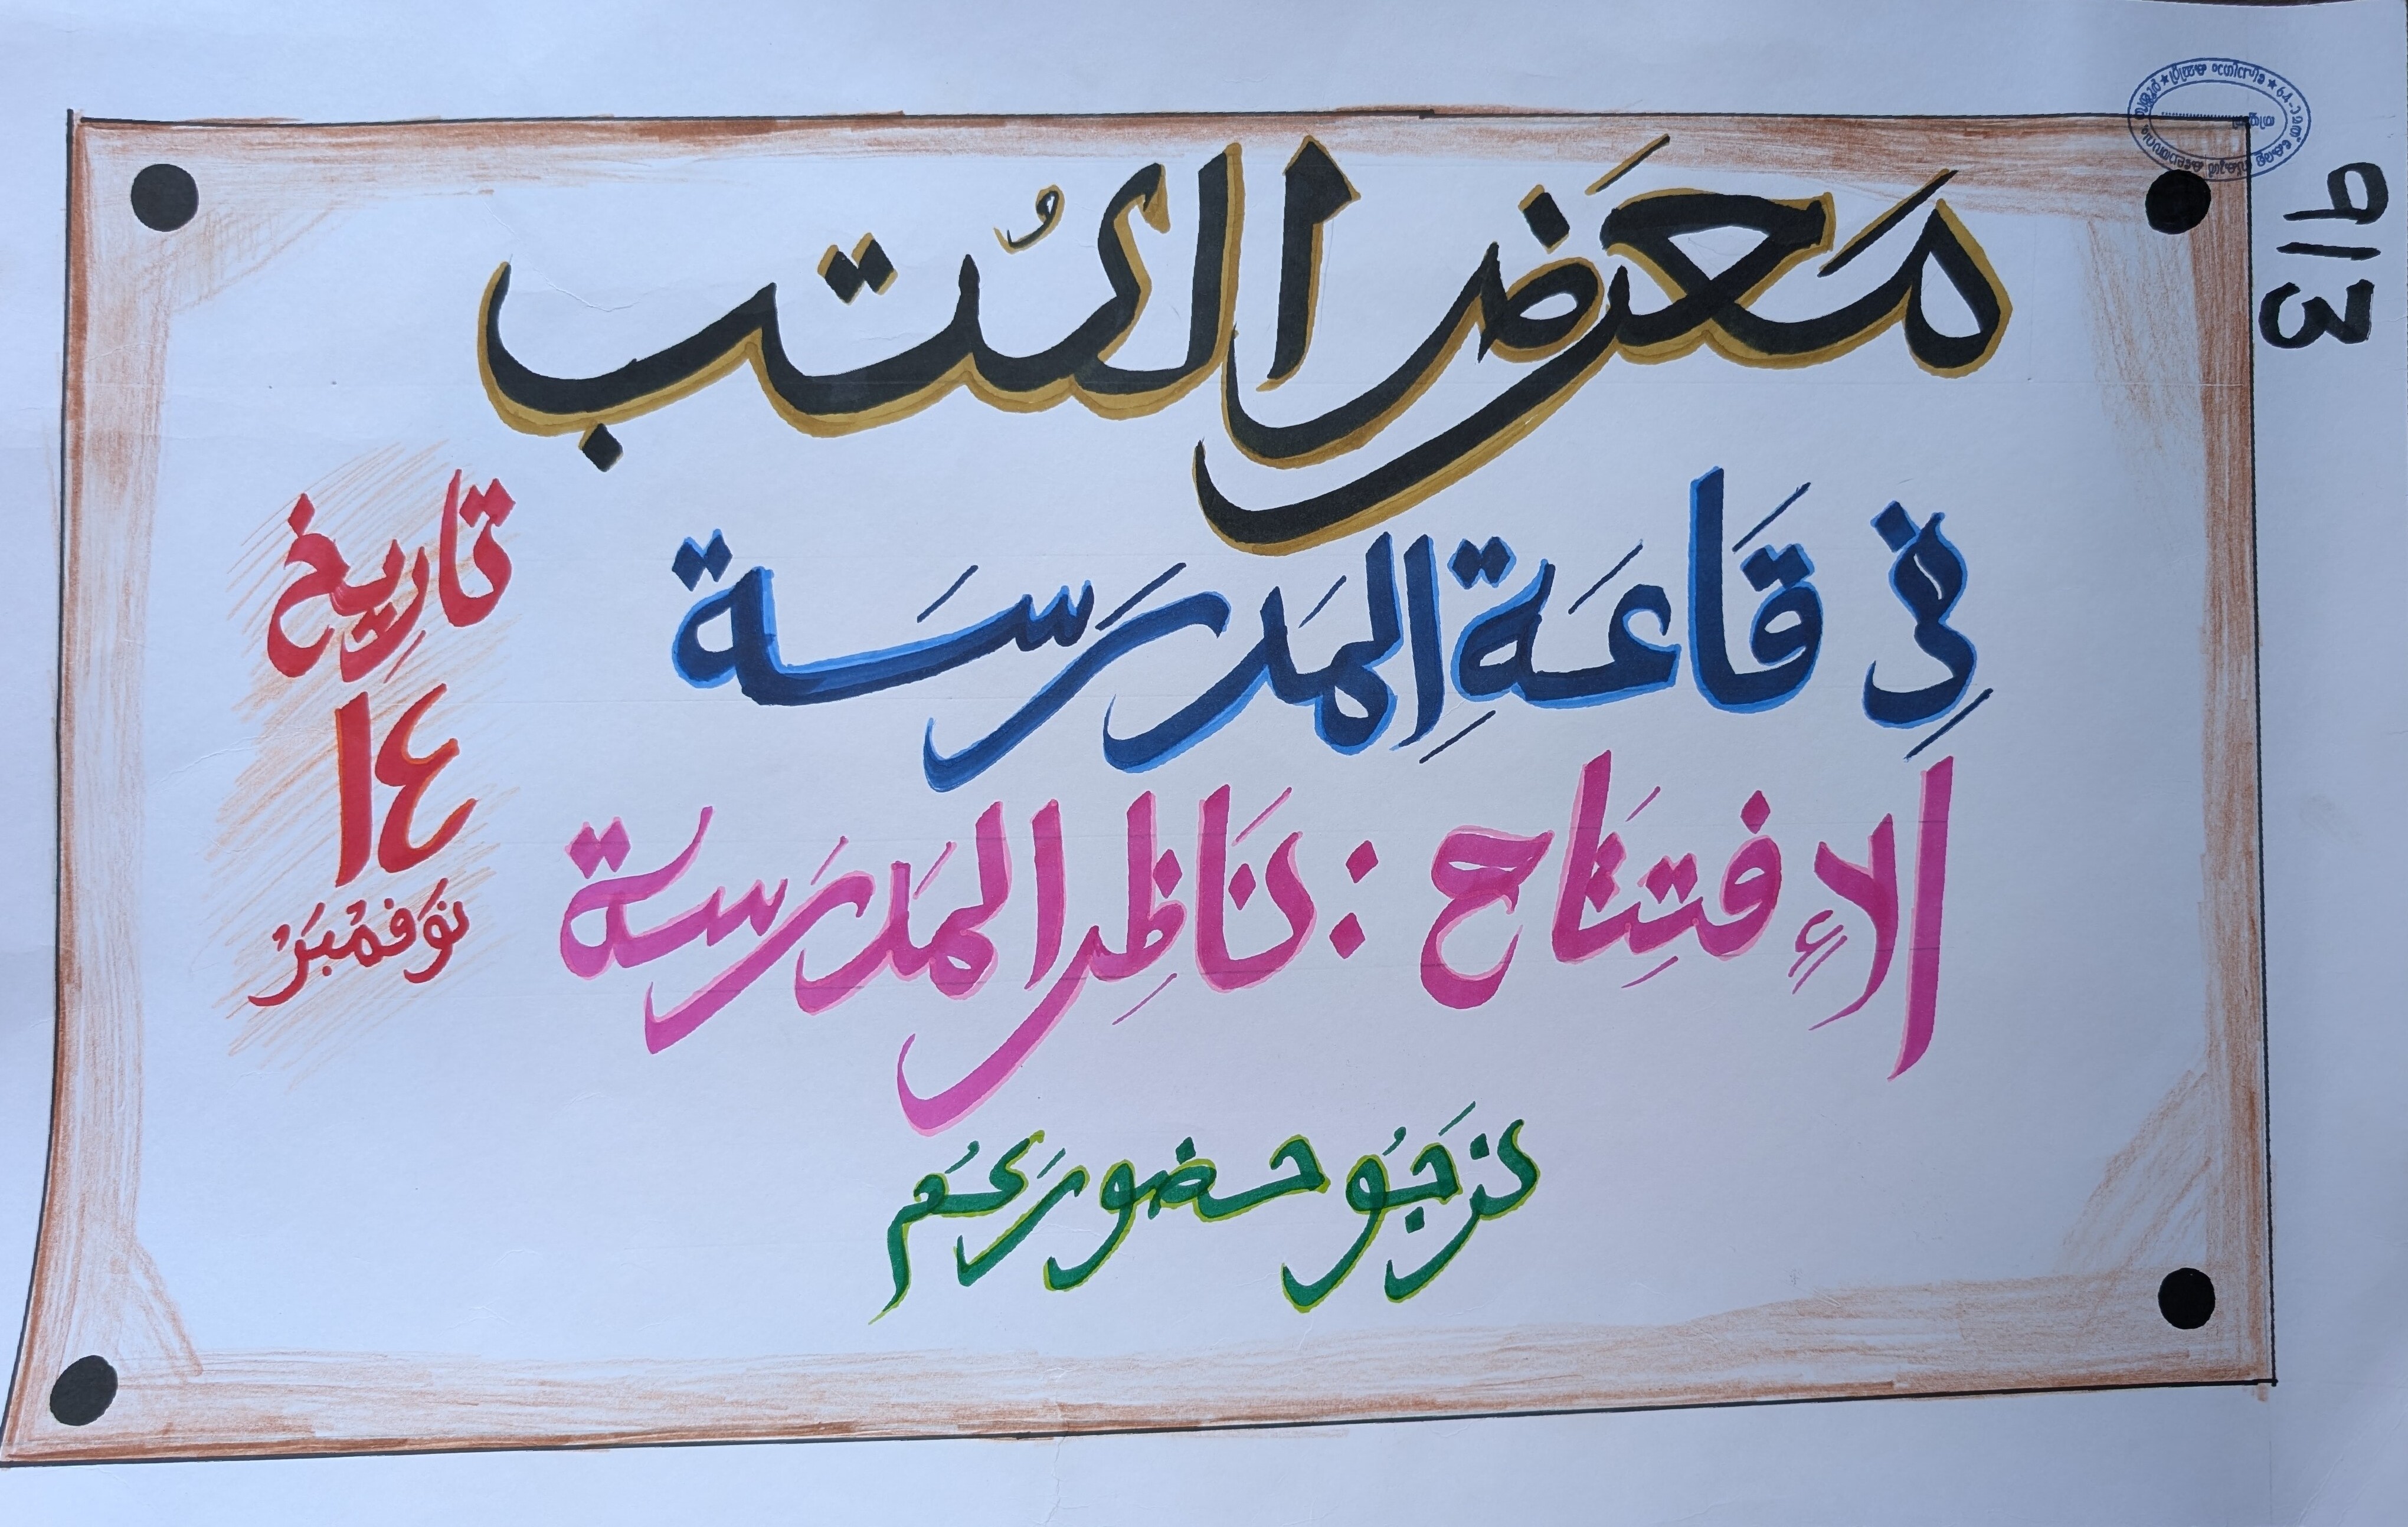 مَعرَض الكُتب
فِي قَاعَةِ المَدرَسَة
الإِفتِتَاح : نَاظِر المَدرَسة
نَرجُو حضوركُم
تارِيخ
١٤
نَوَفمْبَرْ
913